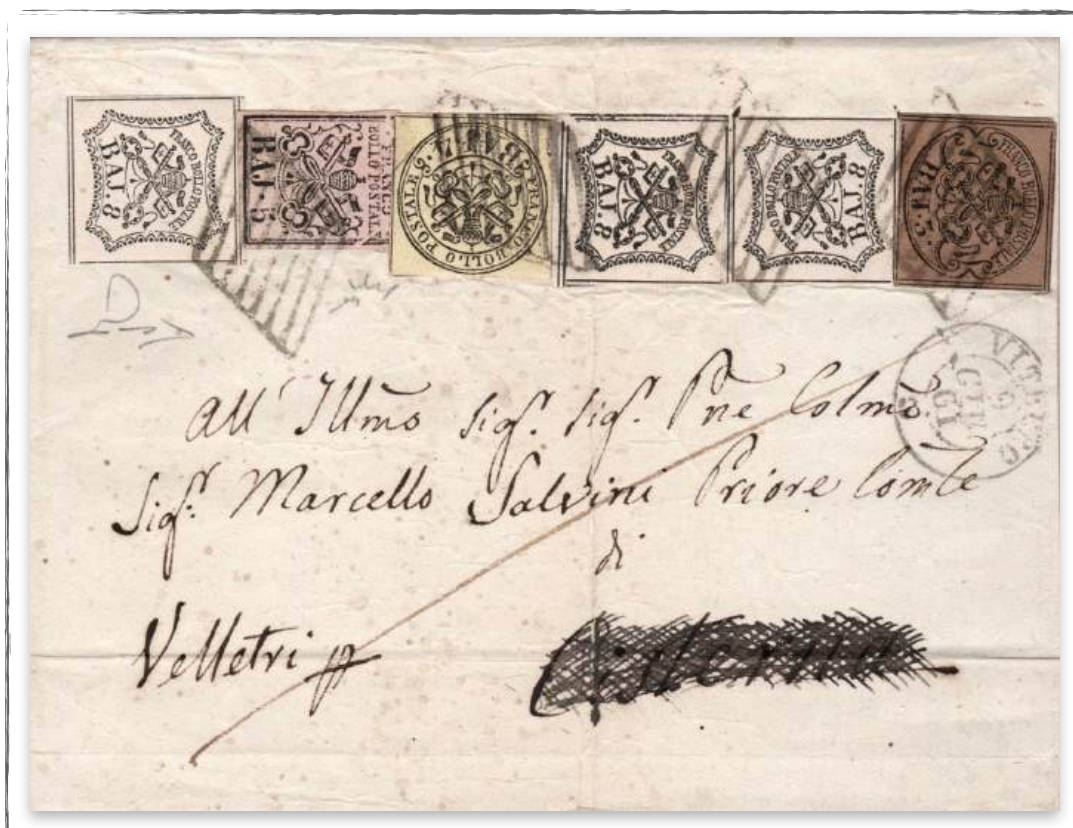 FRANCO BOLLO POSTALE
BAJ. 8
FRANCO
BOLLO POSTALE
BAJ. 5
FRANCO BOLLO POSTALE
BAJ
FRANCO BOLLO POSTALE
BAJ. 8
FRANCO BOLLO POSTALE
BAJ. 8
FRANCO BOLLO POSTALE
BAJ
VITERBO
All' Illmo Sigr. Sigr. Pne Colmo
Sigr. Marcello Salvini Priore Comle
di
Velletri
Cisterna